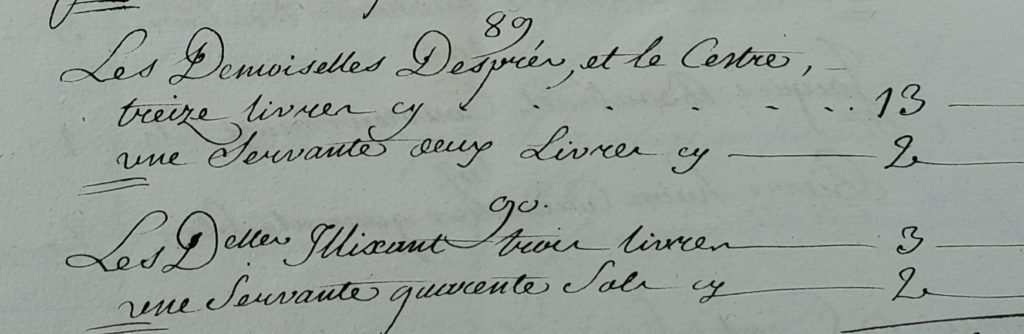 89
Les Demoiselles Desprér, et le Cestre,
treize livres cy . . . . . . 13
une Servante deux Livres cy 2
90.
Les Delles Illixant trois livres 3
une Servante quarente Sols cy 2